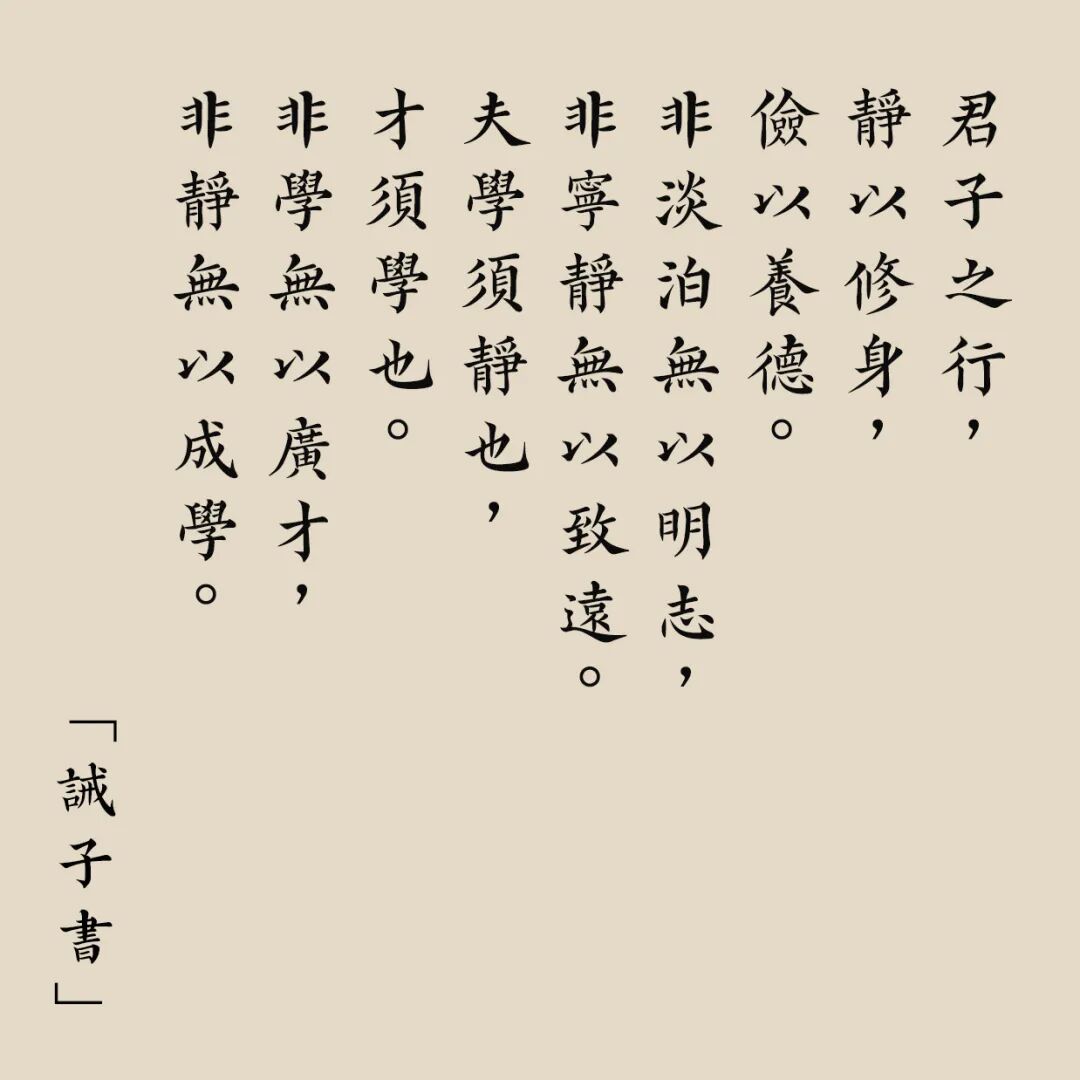 君子之行，
靜以修身，
儉以養德。
非淡泊無以明志，
非寧靜無以致遠。
夫學須靜也，
才須學也。
非學無以廣才，
非靜無以成學。
「誡子書」